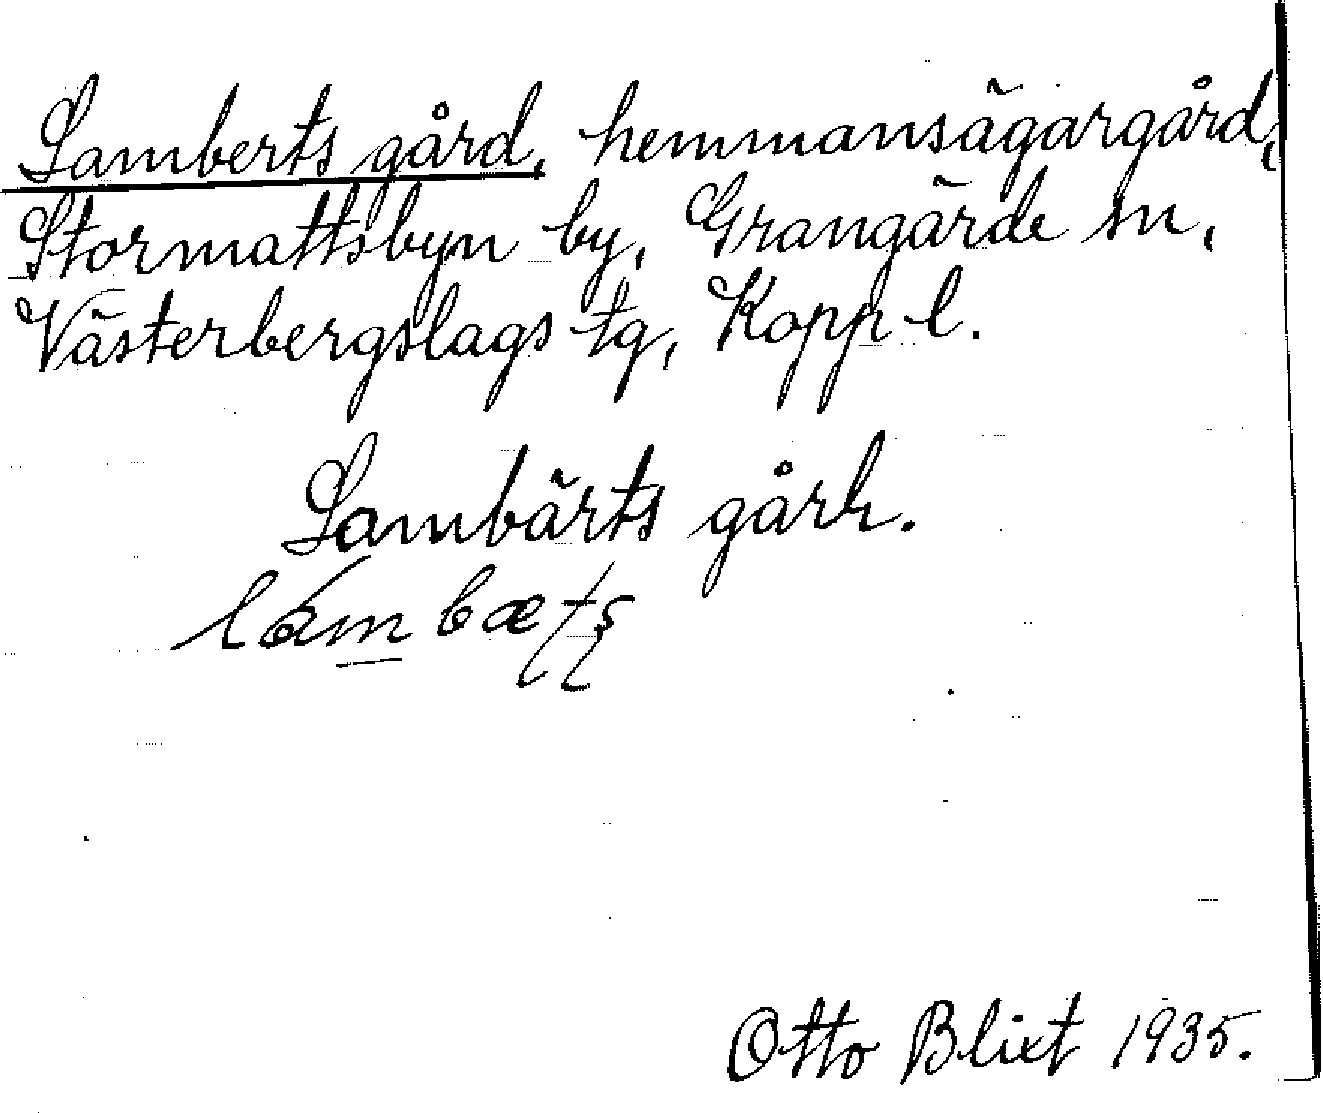 Lamberts gård, hemmansägargård,
Stormattsbyn by, Grangärde sn,
Västerbergslags tg, Kopp l.
Lambärts gårh.
Otto Blixt 1935.